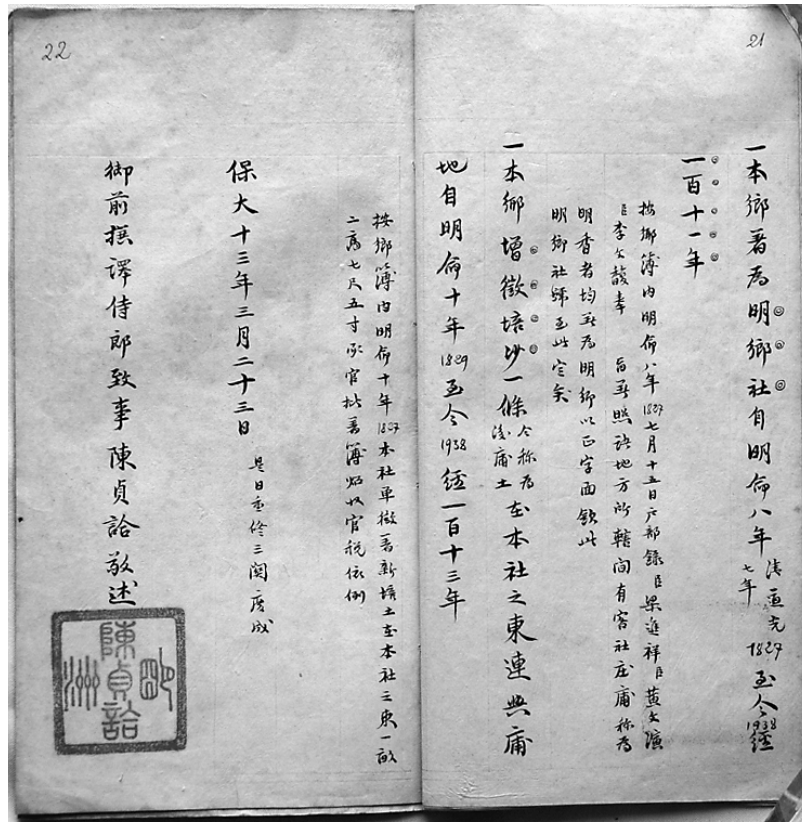 21
一本鄉著為明鄉社自明命八年清道光七年1827至今1938經
一百十一年
按鄉簿內明命八年1827七月十五日戶部錄臣梁進祥臣黃文演
臣李文馥奉 旨著照諸地方所轄間有客社庄庸称為
明香者均著為明鄉以正字面欽此
明鄉社號至此定矣
一本鄉增徵培沙一條今称為後庸土在本社之東連與庸
地自明命十年1829至今1938經一百十三年
22
按鄉簿內明命十年1827本社单徵著新培土在本社之東一畝
二高七尺五寸承官批著簿炤收官稅依例
保大十三年三月二十三日 是日重修三関慶成
御前撰譯侍郎致事陳貞詥敬述
陳貞詥